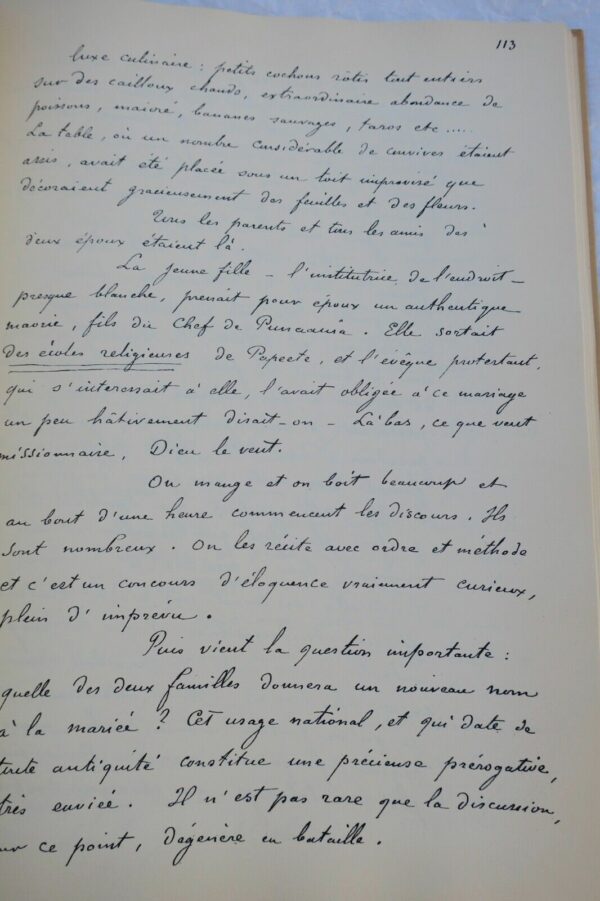 113
luxe culinaire : petits cochons rôtis tout entiers
sur des cailloux chauds, extraordinaire abondance de
poissons, maioré, bananes sauvages, taros etc ....
La table, où un nombre considérable de convives étaient
assis, avait été placée sous un toit improvisé que
décoraient gracieusement des feuilles et des fleurs.
Tous les parents et tous les amis des
deux époux étaient là.
La jeune fille – l'institutrice de l'endroit –
presque blanche, prenait pour époux un authentique
maorie, fils du Chef de Punaauïa. Elle sortait
des écoles religieuses de Papeete, et l'évêque protestant,
qui s'interessait à elle, l'avait obligée à ce mariage
un peu hâtivement disait-on – Là bas, ce que veut
missionnaire, Dieu le veut.
On mange et on boit beaucoup et
au bout d'une heure commencent les discours. Ils
sont nombreux. On les récite avec ordre et méthode
et c'est un concours d'éloquence vraiment curieux,
plein d'imprévu.
Puis vient la question importante :
quelle des deux familles donnera un nouveau nom
à la mariée ? Cet usage national, et qui date de
toute antiquité constitue une précieuse prérogative,
très enviée. Il n'est pas rare que la discussion,
sur ce point, dégénère en bataille.